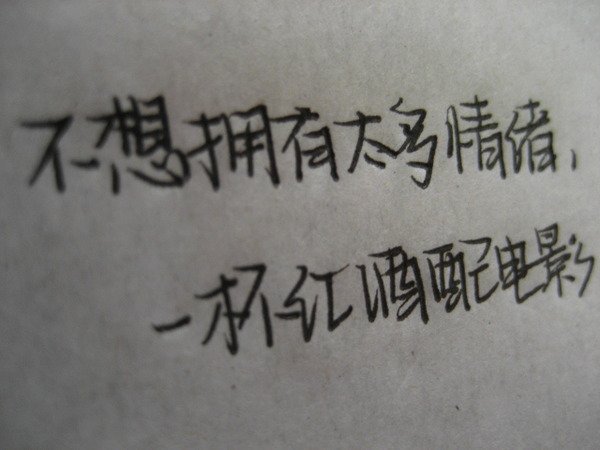 不想拥有太多情绪，
一杯红酒配电影